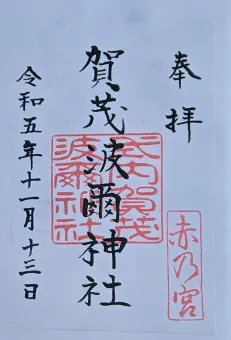 奉拝
赤乃宮
賀茂波爾神社
式内賀茂
波爾神社
令和五年十一月十三日